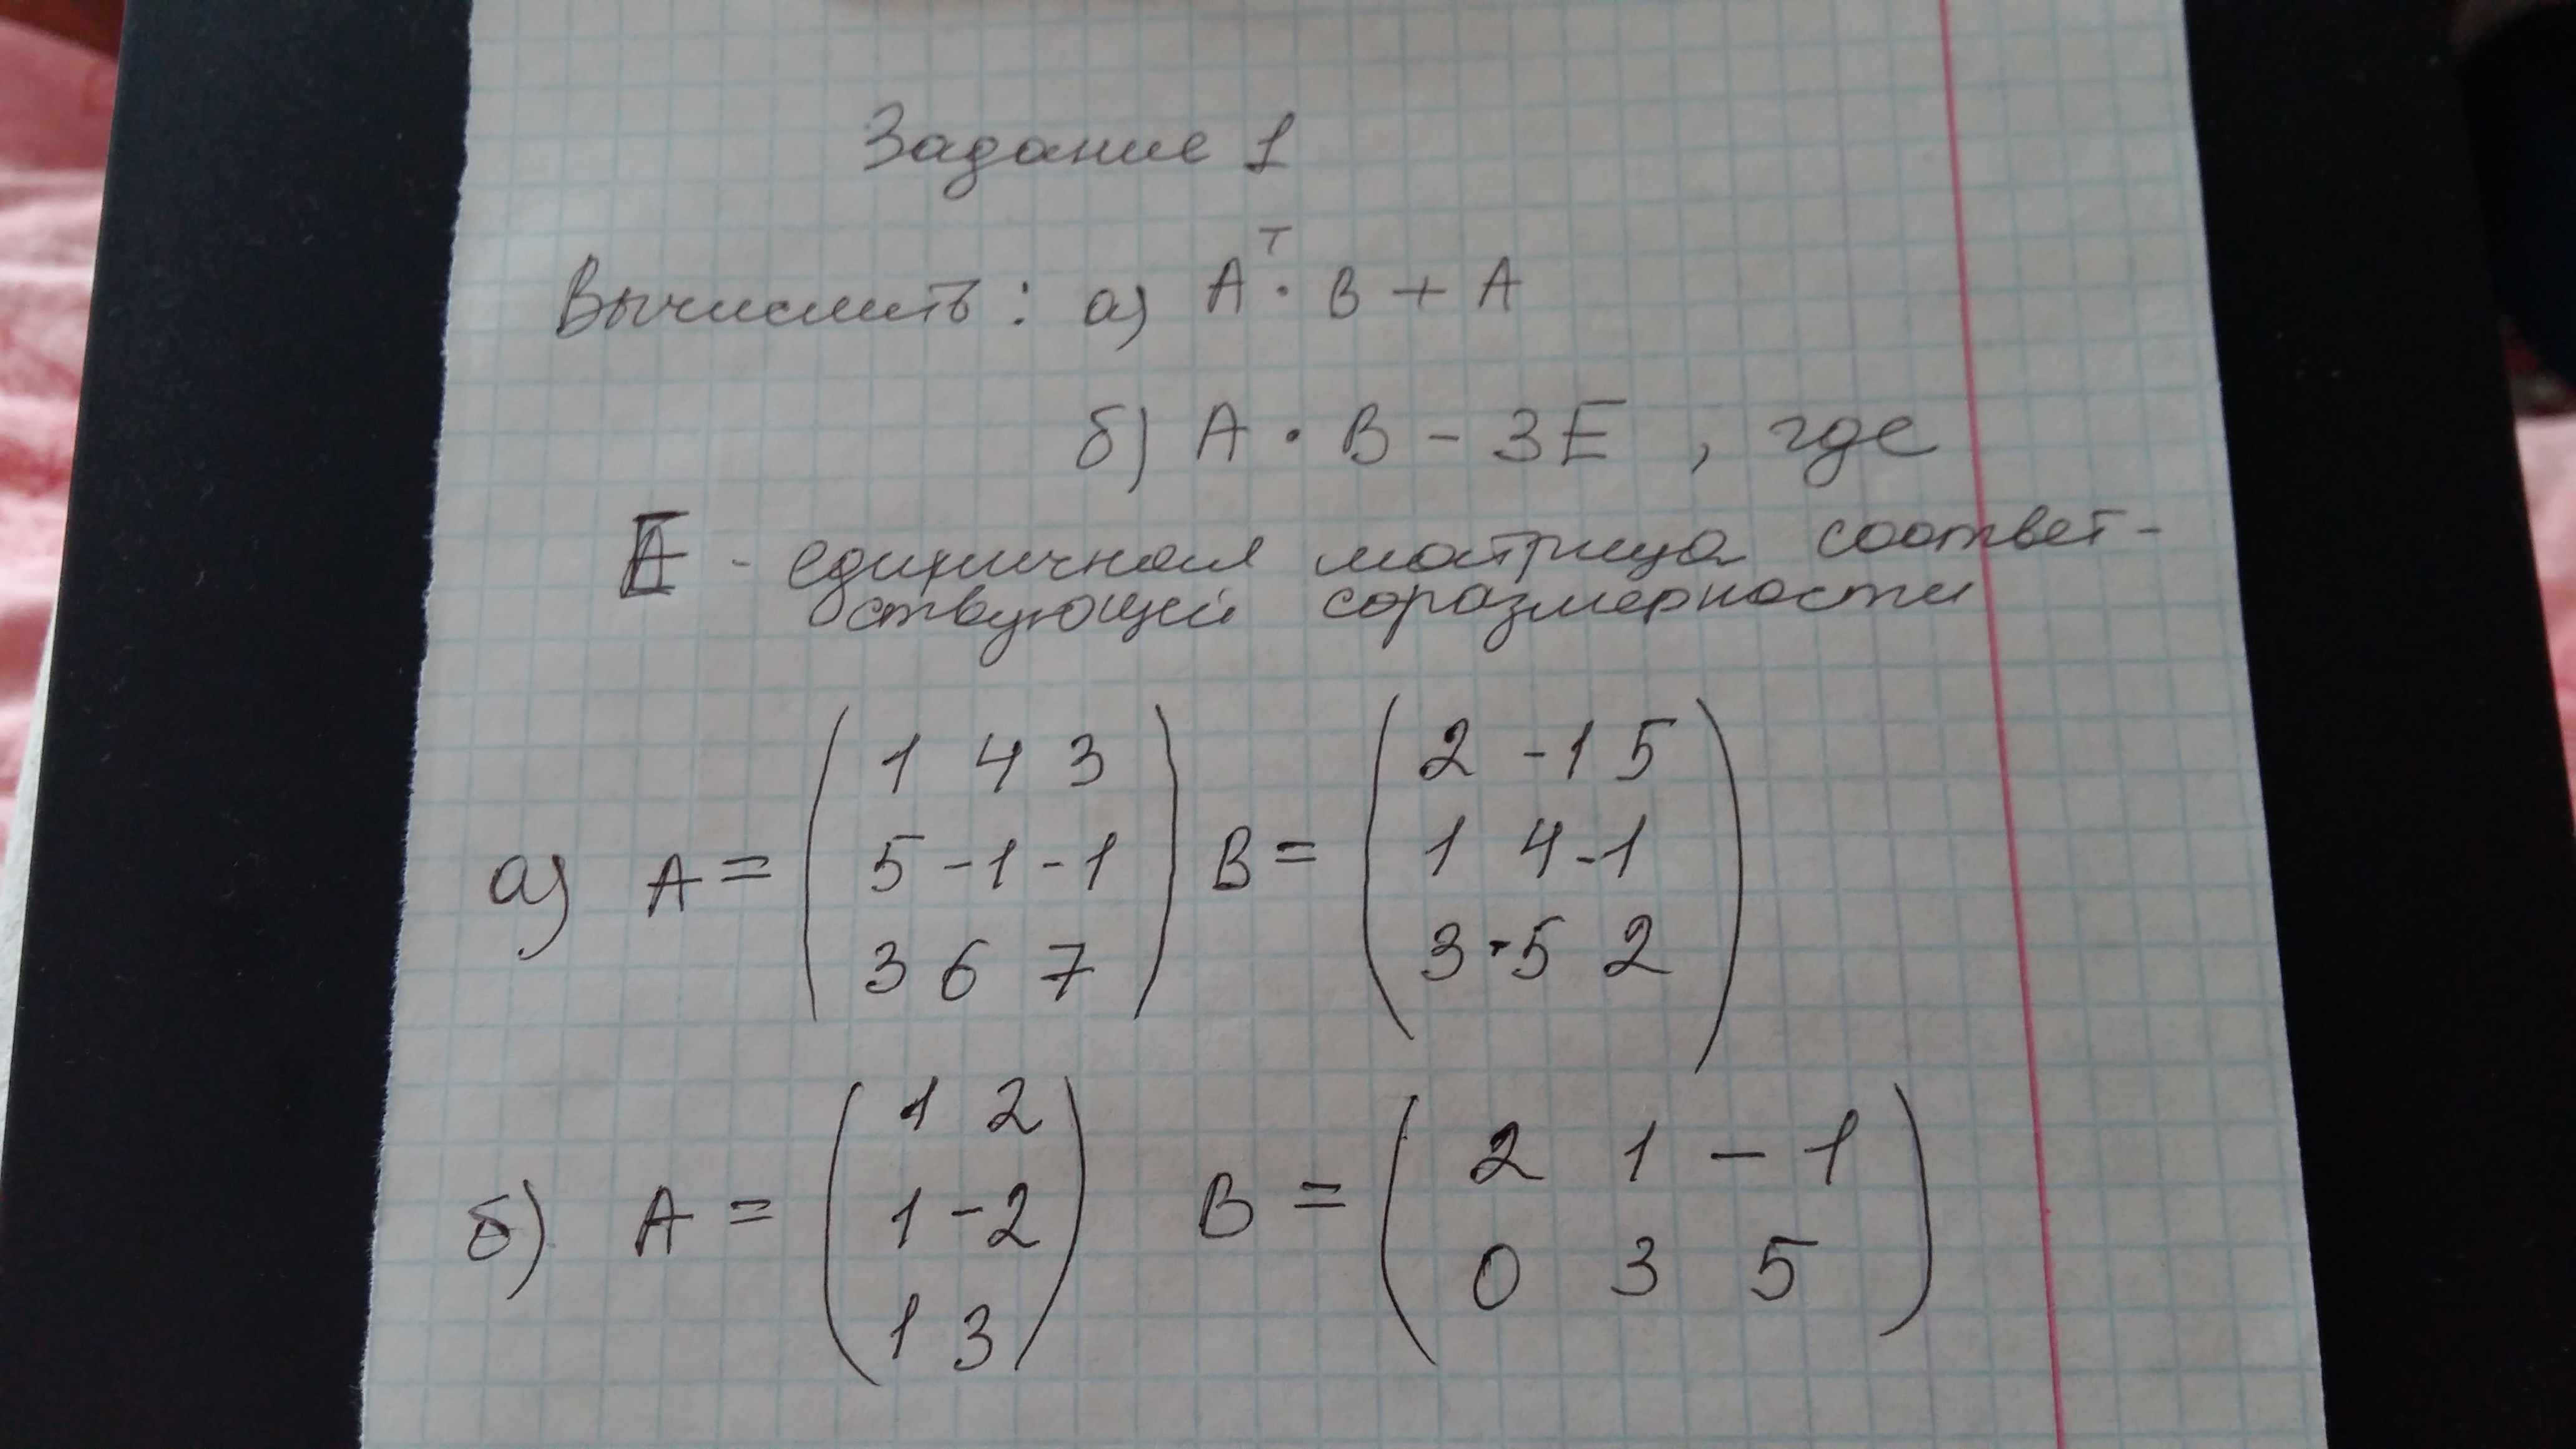 Задание 1
Вычислить: а) Aᵀ · B + A
б) A · B - 3E , где
E - единичная матрица соответ-
ствующей соразмерности
а) A = ( 1 4 3 ) B = ( 2 -1 5 )
5 -1 -1 1 4 -1
3 6 7 3 -5 2
б) A = ( 1 2 ) B = ( 2 1 -1 )
1 -2 0 3 5
1 3